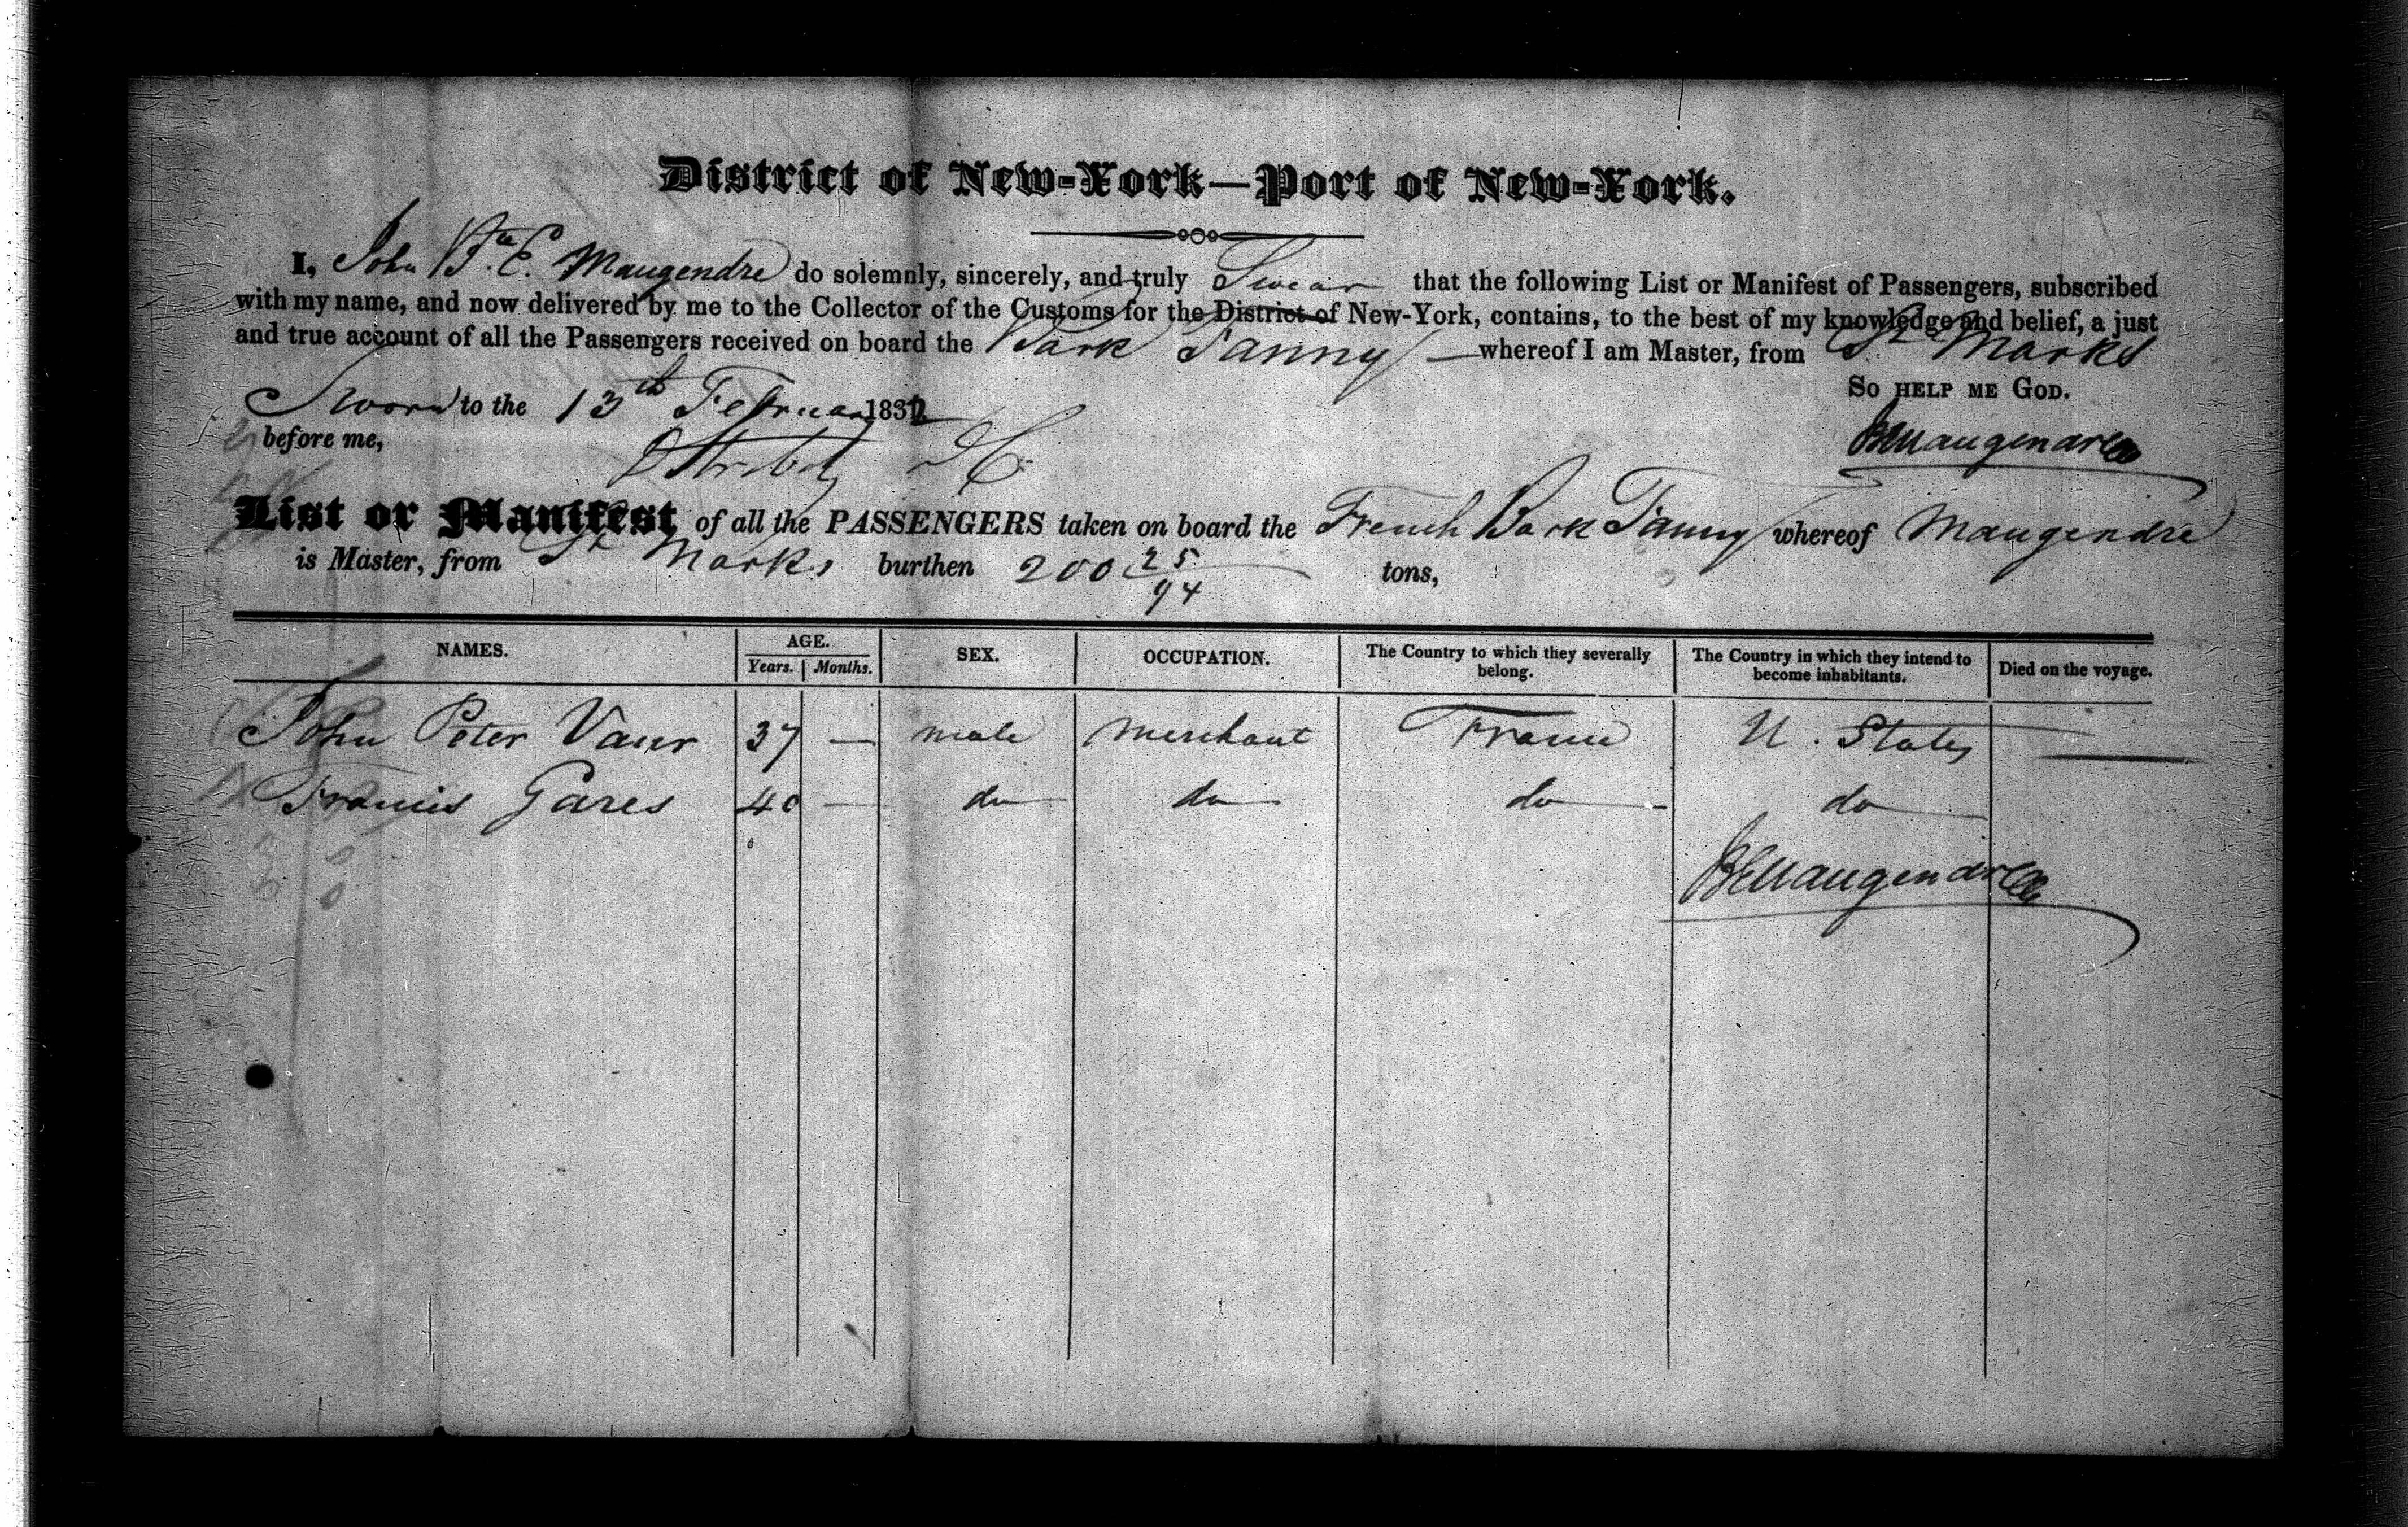 District of New-York—Port of New-York.
I, John Bte. E. Maugendre do solemnly, sincerely, and truly Swear that the following List or Manifest of Passengers, subscribed
with my name, and now delivered by me to the Collector of the Customs for the District of New-York, contains, to the best of my knowledge and belief, a just
and true account of all the Passengers received on board the Bark Fanny whereof I am Master, from St Marks
So help me God.
Sworn to the 13th February 183
before me,
BEMaugendre
List or Manifest of all the PASSENGERS taken on board the French Bark Fanny whereof Maugendre
is Master, from St Marks burthen 200 25/94 tons,
NAMES. AGE. Years. Months. SEX. OCCUPATION. The Country to which they severally belong. The Country in which they intend to become inhabitants. Died on the voyage.
John Peter Vaur 37 — male merchant France U. States —
Francis Gares 40 — do do do do
BEMaugendre